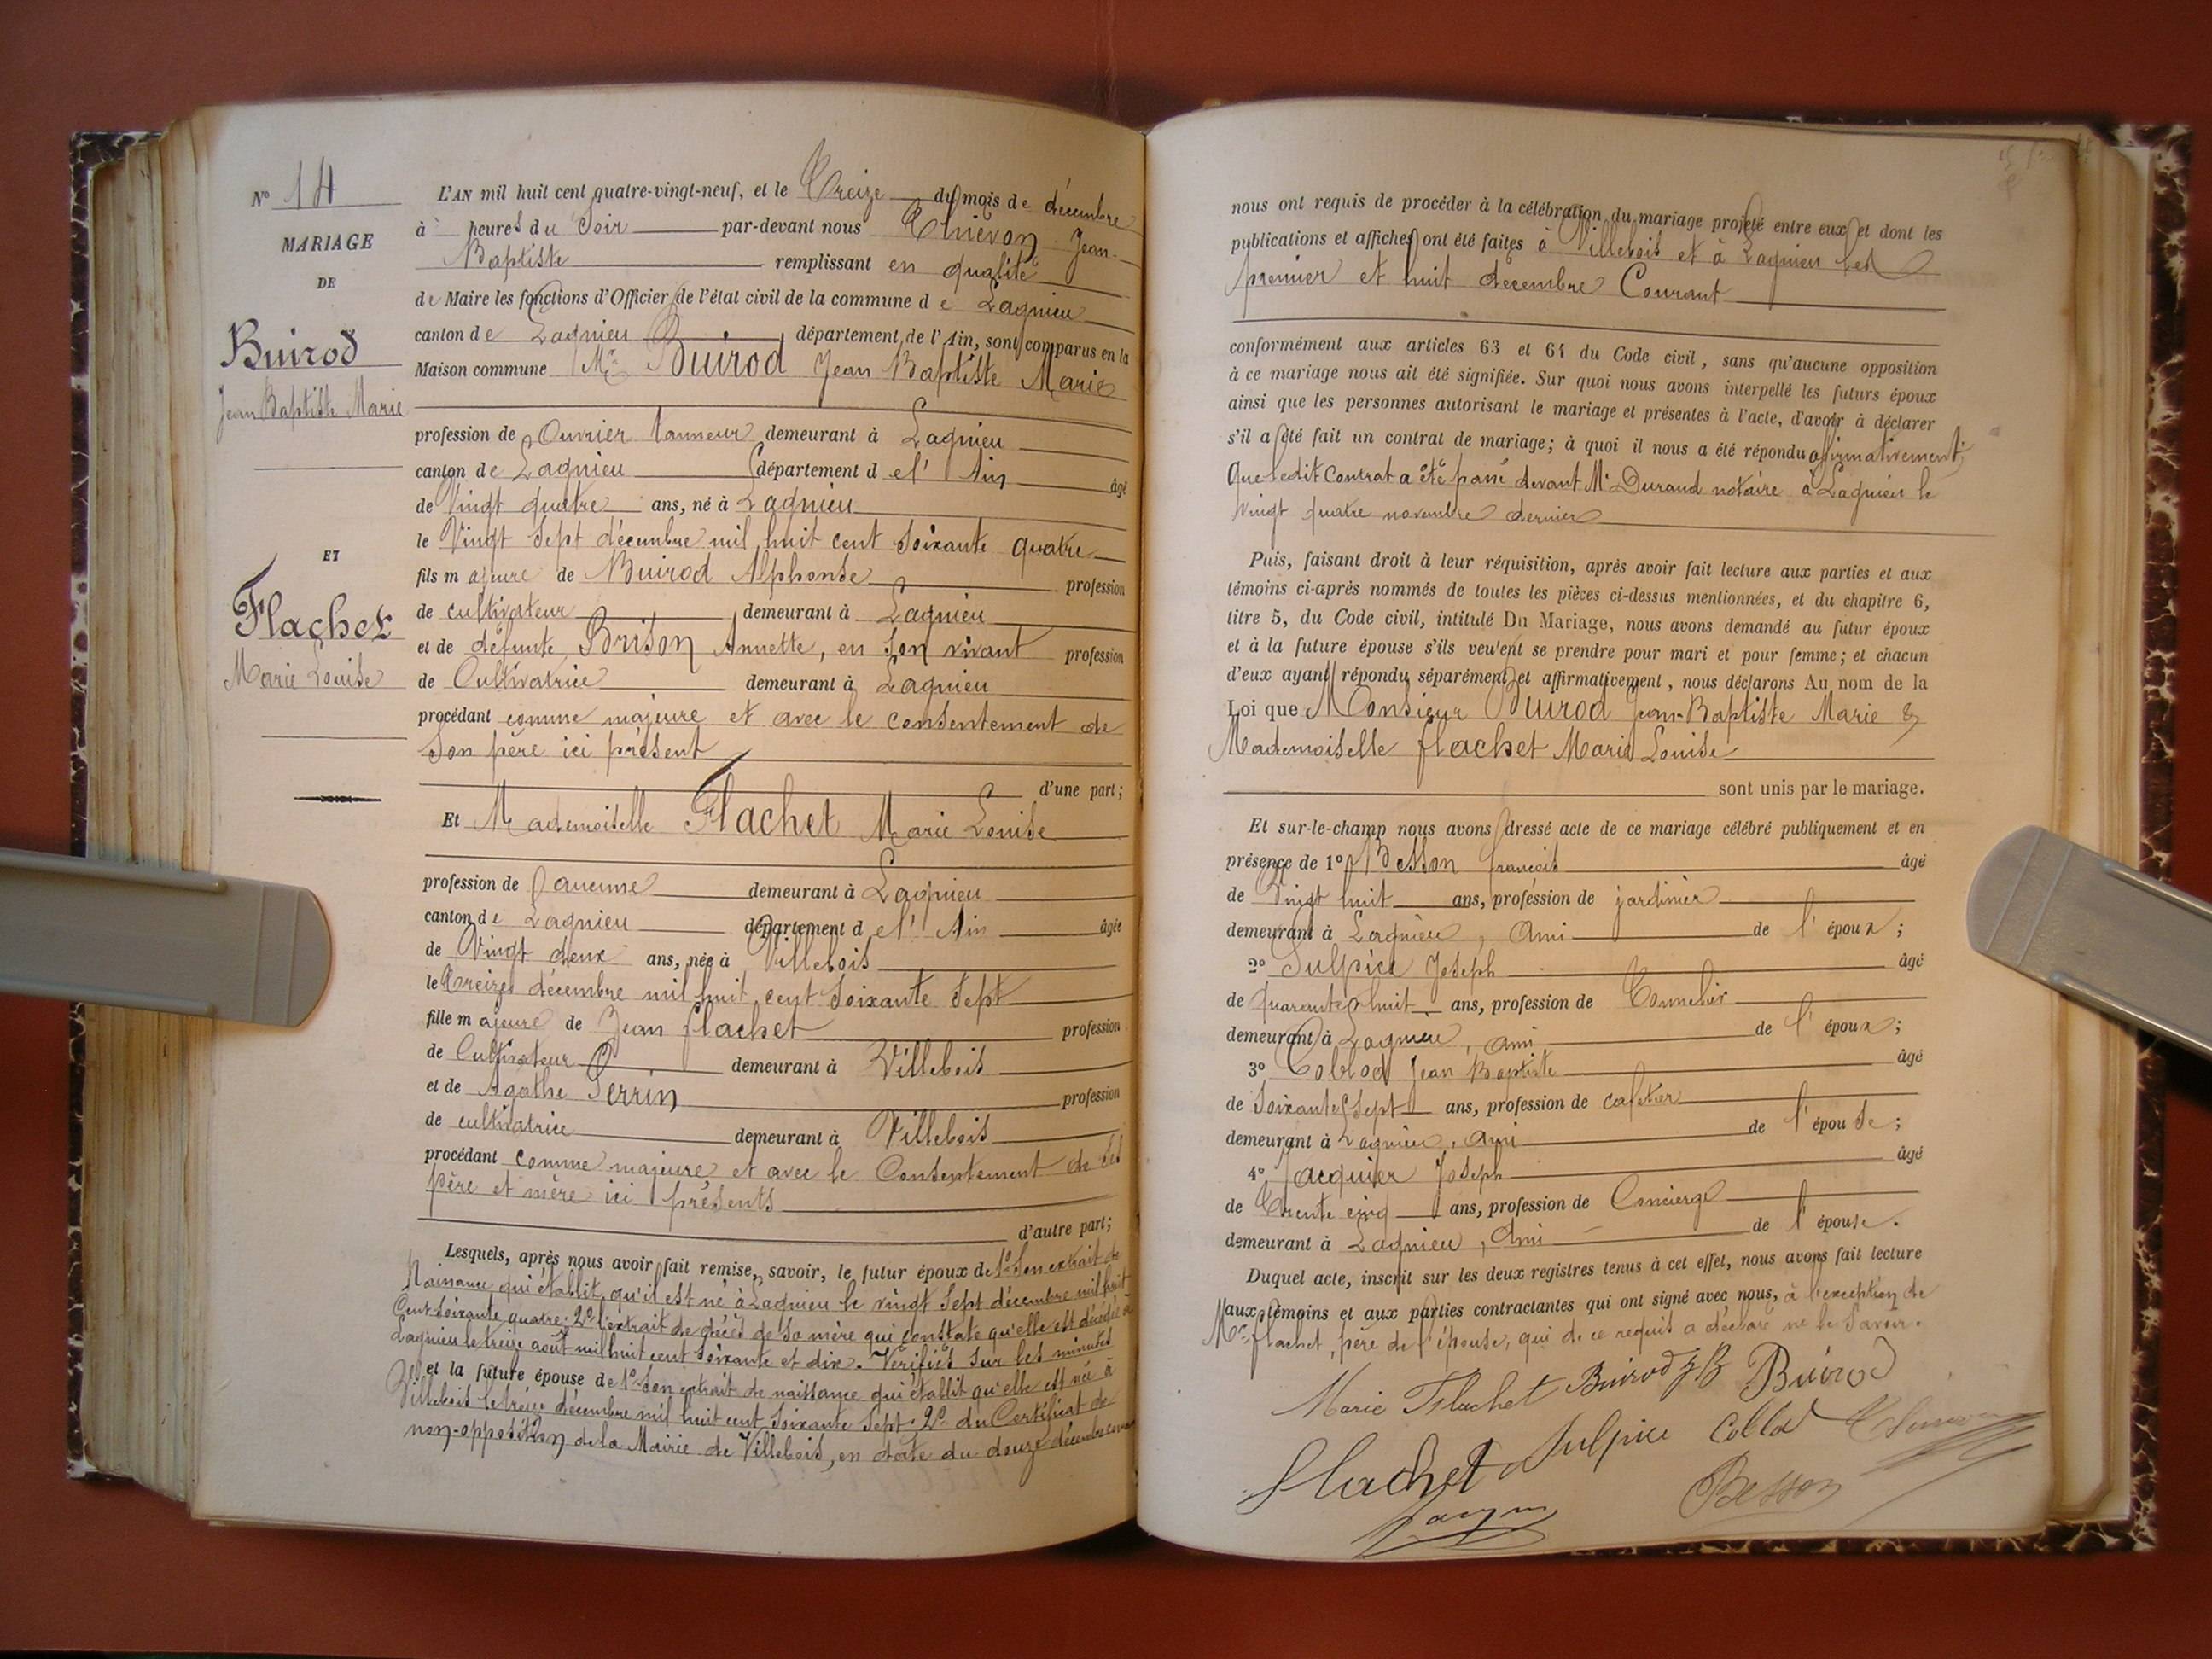 N° 14
MARIAGE
DE
Buirod
Jean Baptiste Marie
ET
Flachet
Marie Louise
L'AN mil huit cent quatre-vingt-neuf, et le Treize du mois de décembre
à heures du Soir par-devant nous Thievon Jean-
Baptiste remplissant en qualité
de Maire les fonctions d'Officier de l'état civil de la commune de Lagnieu
canton de Lagnieu département de l'Ain, sont comparus en la
Maison commune Mr Buirod Jean Baptiste Marie
profession de Ouvrier tanneur demeurant à Lagnieu
canton de Lagnieu département de l'Ain âgé
de Vingt quatre ans, né à Lagnieu
le Vingt Sept décembre mil huit cent soixante quatre
fils majeure de Buirod Alphonse profession
de cultivateur demeurant à Lagnieu
et de défunte Brison Annette, en son vivant profession
de Cultivatrice demeurant à Lagnieu
procédant comme majeure et avec le consentement de
Son père ici présent
d'une part;
Et Mademoiselle Flachet Marie Louise
profession de aucune demeurant à Lagnieu
canton de Lagnieu département de l'Ain âgée
de Vingt deux ans, née à Villebois
le treize décembre mil huit cent soixante sept
fille majeure de Jean flachet profession
de Cultivateur demeurant à Villebois
et de Agathe Perrin profession
de cultivatrice demeurant à Villebois
procédant comme majeure et avec le Consentement de ses
père et mère ici présents
d'autre part;
Lesquels, après nous avoir fait remise, savoir, le futur époux de 1° Son extrait de
Naissance qui établit qu'il est né à Lagnieu le vingt Sept décembre mil huit
Cent soixante quatre; 2° l'extrait de décès de sa mère qui constate qu'elle est décédée à
Lagnieu le treize août mil huit cent soixante et dix. Vérifiés sur les minutes
et la future épouse de 1° Son extrait de naissance qui établit qu'elle est née à
Villebois le treize décembre mil huit cent soixante sept; 2° du Certificat de
non-opposition de la Mairie de Villebois, en date du douze décembre courant
nous ont requis de procéder à la célébration du mariage projeté entre eux et dont les
publications et affiches ont été faites à Villebois et à Lagnieu les
premier et huit decembre Courant
conformément aux articles 63 et 64 du Code civil, sans qu'aucune opposition
à ce mariage nous ait été signifiée. Sur quoi nous avons interpellé les futurs époux
ainsi que les personnes autorisant le mariage et présentes à l'acte, d'avoir à déclarer
s'il a été fait un contrat de mariage; à quoi il nous a été répondu afirmativement;
Que ledit Contrat a été passé devant Me Durand notaire à Lagnieu le
vingt quatre novembre dernier
Puis, faisant droit à leur réquisition, après avoir fait lecture aux parties et aux
témoins ci-après nommés de toutes les pièces ci-dessus mentionnées, et du chapitre 6,
titre 5, du Code civil, intitulé Du Mariage, nous avons demandé au futur époux
et à la future épouse s'ils veulent se prendre pour mari et pour femme; et chacun
d'eux ayant répondu séparément et affirmativement, nous déclarons Au nom de la
Loi que Monsieur Buirod Jean-Baptiste Marie &
Mademoiselle flachet Marie Louise
sont unis par le mariage.
Et sur-le-champ nous avons dressé acte de ce mariage célébré publiquement et en
présence de 1° Besson françois âgé
de Vingt huit ans, profession de jardinier
demeurant à Lagnieu, Ami de l'époux;
2° Sulpice Joseph âgé
de quarante huit ans, profession de Tonnelier
demeurant à Lagnieu, ami de l'époux;
3° Collod Jean Baptiste âgé
de Soixante Sept ans, profession de cafetier
demeurant à Lagnieu, ami de l'épouse;
4° Jacquier Joseph âgé
de Trente cinq ans, profession de Concierge
demeurant à Lagnieu, Ami de l'épouse.
Duquel acte, inscrit sur les deux registres tenus à cet effet, nous avons fait lecture
aux témoins et aux parties contractantes qui ont signé avec nous, à l'exception de
Mr flachet, père de l'épouse, qui de ce requis a déclaré ne le Savoir.
Marie Flachet Buirod J B Buirod
Flachet Sulpice Collod
Besson